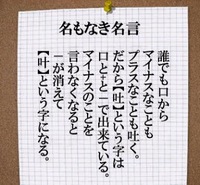 名もなき名言
誰でも口から
マイナスなことも
プラスなことも吐く。
だから【吐】という字は
口と+と−で出来ている。
マイナスのことを
言わなくなると
−が消えて
【叶】という字になる。